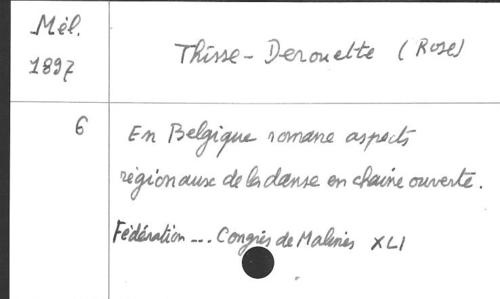 Mél.
1897
Thisse-Derouette (Rose)
6
En Belgique romane aspects
régionaux de la danse en chaine ouverte.
Fédération ... Congrès de Malines XLI